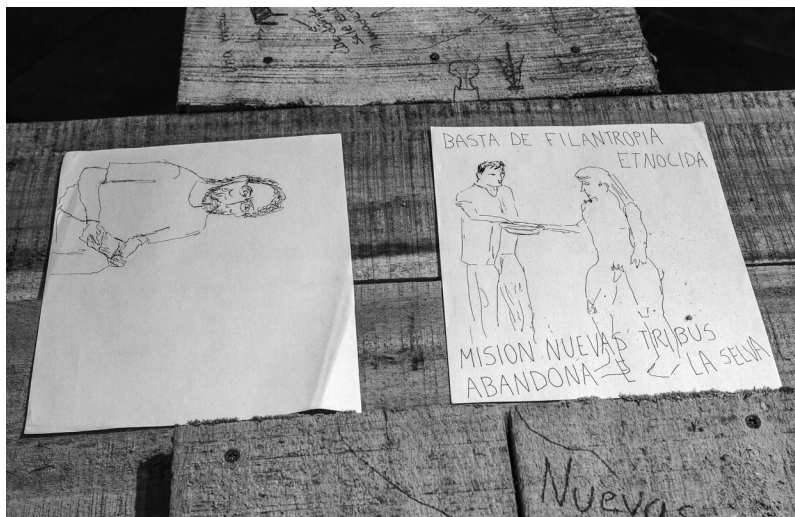 una
BASTA DE FILANTROPIA
ETNOCIDA
MISION NUEVAS TRIBUS
ABANDONA
LA SELVA
Nuevas